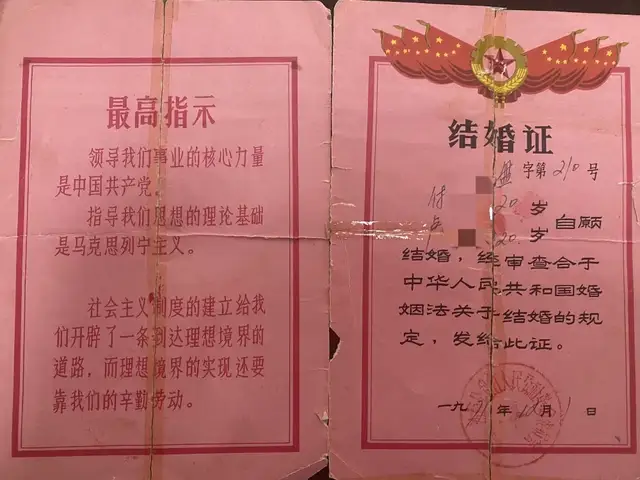 最高指示
领导我们事业的核心力量
是中国共产党。
指导我们思想的理论基础
是马克思列宁主义。
社会主义制度的建立给我
们开辟了一条到达理想境界的
道路，而理想境界的实现还要
靠我们的辛勤劳动。
结婚证
字第210号
20岁
20岁
自愿
结婚，经审查合于
中华人民共和国婚
姻法关于结婚的规
定，发给此证。
一九年月日